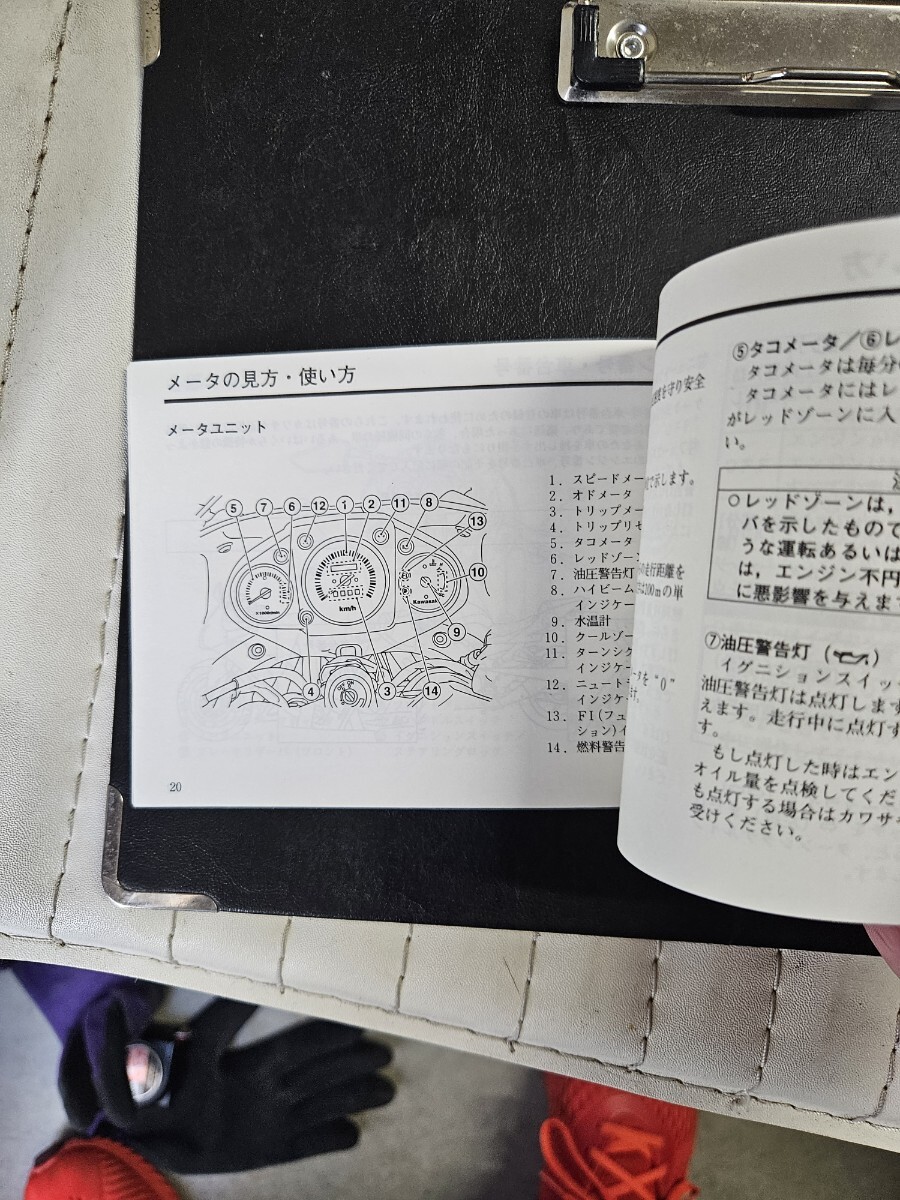 メータの見方・使い方
メータユニット
5 7 6 12 1 2 11 8 13
10
9
4 3 14
km/h
Kawasaki
1. スピードメー
2. オドメータ
3. トリップメー
4. トリップリセ
5. タコメータ
6. レッドゾーン
7. 油圧警告灯
8. ハイビーム
インジケー
9. 水温計
10. クールゾー
11. ターンシグ
インジケー
12. ニュート
インジケ
13. FI(フュ
ション)イ
14. 燃料警告
20
を守り安全
で示します。
走行距離を
100mの単
タを "0"
⑤タコメータ/⑥レ
タコメータは毎分の
タコメータにはレ
がレッドゾーンに入
い。
○レッドゾーンは,
バを示したもので
うな運転あるいは
は, エンジン不円
に悪影響を与えま
⑦油圧警告灯 ( )
イグニションスイッ
油圧警告灯は点灯しま
えます。走行中に点灯す
す。
もし点灯した時はエン
オイル量を点検してくだ
も点灯する場合はカワサ
受けください。